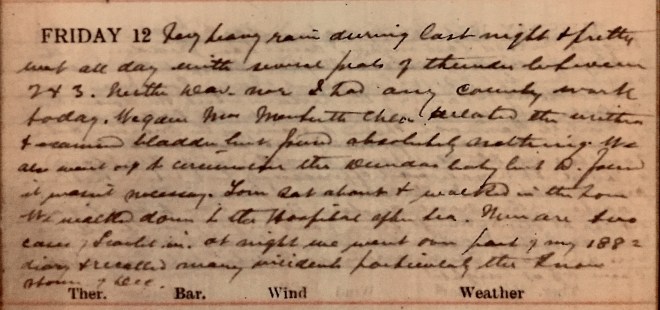 FRIDAY 12 Very heavy rain during last night & pretty
wet all day with several peals of thunder between
2 & 3. Neither nor I had any country work
today. We gave Mrs dilated the
& examined bladder but found absolutely nothing. We
also went up to circumcise the Dundas baby but D. found
it wasn't necessary. Tom sat about & walked in the
We walked down to the Hospital after tea. There are two
cases of Scarlet in. At night we went over part of my 1882
diary & recalled many incidents particularly the Snow
storm of Dec.
Ther. Bar. Wind Weather